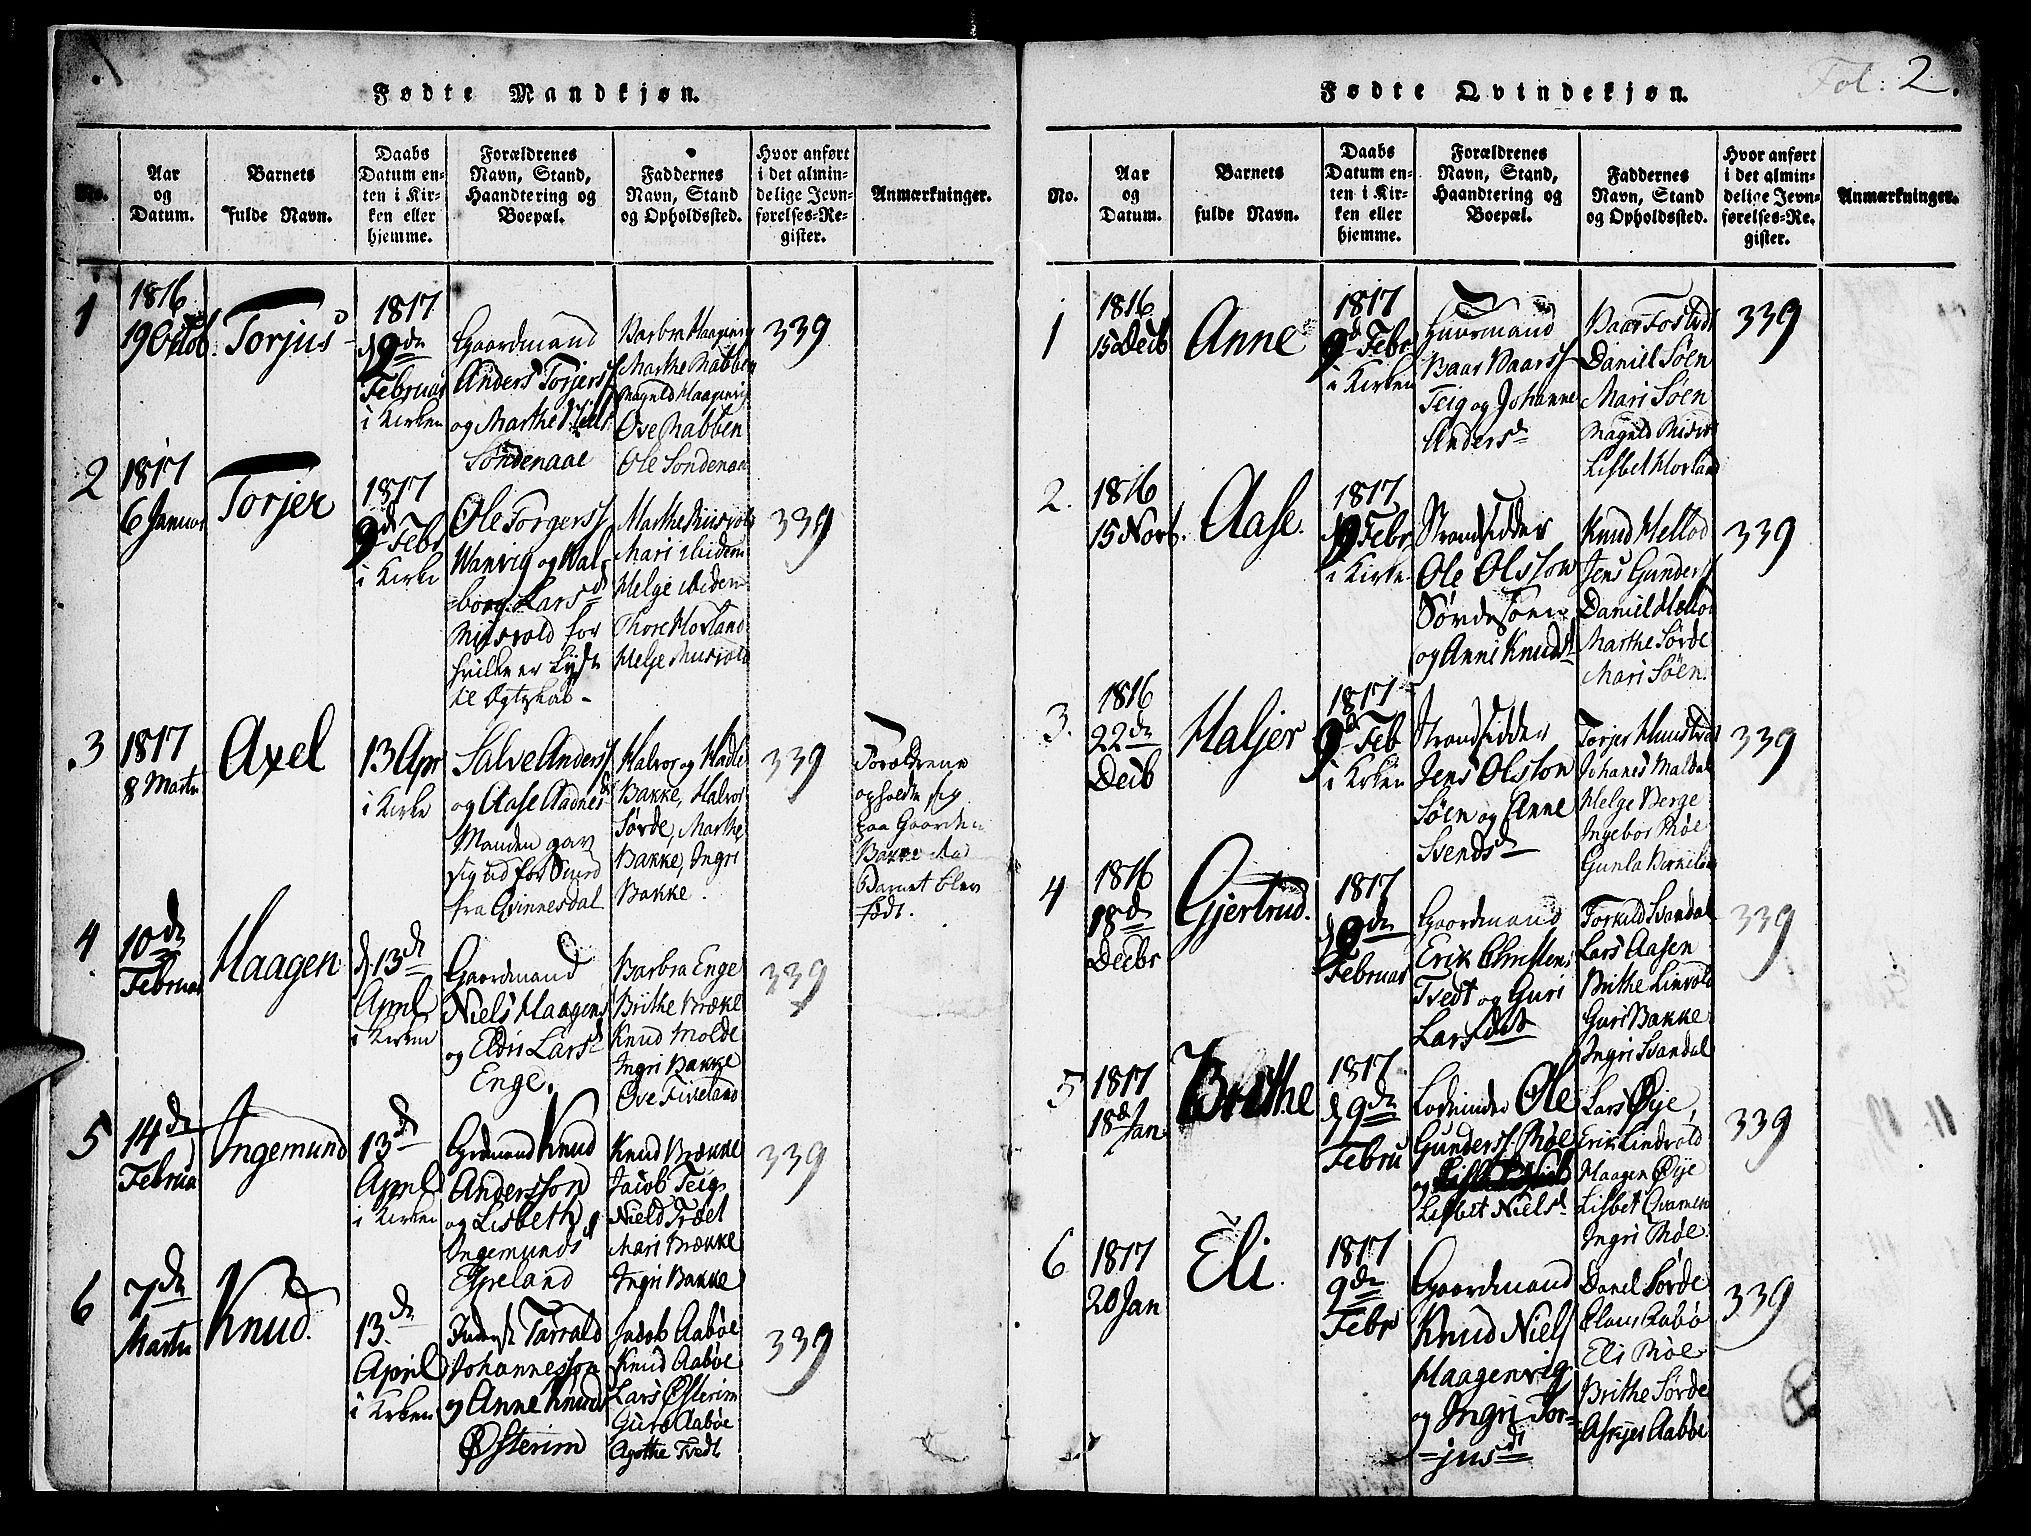 Fødte Mandkjøn.
No.
Aar
og
Datum.
Barnets
fulde Navn.
Daabs
Datum en-
ten i Kir-
ken eller
hjemme.
Forældrenes
Navn, Stand,
Haandtering og
Boepæl.
Faddernes
Navn, Stand
og Opholdssted.
Hvor anført
i det almin-
delige Jevn-
førelses-Re-
gister.
Anmærkninger.
1
1816
19 Octob.
Torjus
1817
d 9de
Februar
i Kirken
Gaardmand
Anders Torjers
og Marthe
Söndenaae
Barbra Haagenvig
Marthe Nabben
Magnld Haagenvig
Ove Nabben
Ole Söndenaa
339
2
1817
6 Januar
Torjer
1817
9d Febr
i Kirke
Ole Torgers
Wanvig og Wal-
borg Larsd
Misvold for
hvilke er Lyst
til Ægteskab -
Marthe Misvold
Mari ibidem
Helge ibidem
Thore Hovland
Helje Misvold
339
3
1817
8 Martii
Axel
13 Apr
i Kirke
Salve Anders
og Aase Aadnesd
Manden gav
sig ud for Smed
fra Qvinnesdal
Halvor og Hadle
Bakke, Halvor
Sørde, Marthe
Bakke, Ingri
Bakke.
339
Forældrene
opholdt sig
paa Gaarden
Bakke da
Barnet blev
født.
4
10de
Februar
Haagen
d 13de
April
i Kirken
Gaardmand
Niels Haagens
og Eldri Larsd
Enge.
Barbra Enge
Brithe Brække
Knud Molde
Ingri Bakke
Ove Fiveland
339
5
14de
Februa
Ingemund
13de
April
i Kirken
Grdmand Knud
Andersson
og Lisbeth
Ingemundsd
Egeland
Knud Brække
Jacob Teig
Nield Træet
Mari Brække
Ingri Bakke
339
6
7de
Martii
Knud.
13de
April
i Kirken
Tarrald
Johannesson
og Anne Knudsd
Østerim
Jacob Aabøe
Knud Aabøe
Lars Østerim
Guro Aabøe
Agothe Tvedt
339
Fol: 2.
Fødte Qvindekjøn.
No.
Aar
og
Datum.
Barnets
fulde Navn.
Daabs
Datum en-
ten i Kir-
ken eller
hjemme.
Forældrenes
Navn, Stand,
Haandtering og
Boepæl.
Faddernes
Navn, Stand
og Opholdssted.
Hvor anført
i det almin-
delige Jevn-
førelses-Re-
gister.
Anmærkninger.
1
1816
15 Decb
Anne
1817
9d Febr
i Kirken
Huusmand
Baar Baars
Teig og Johanne
Andersd
Baar Fosteds
Daniel Søen
Mari Søen
Magnld Misvol
Lisbet Hovland
339
2.
1816
15 Novb.
Aase.
1817
d 9 Febr
i Kirke
Strandsidder
Ole Olsson
Sørdesøen
og Anne Knudsd
Knud Mellod
Jens Gunders
Daniel Mellod
Marthe Sørde
Mari Søen.
339
3.
1816
22de
Decb
Maljer
1817
9d Feb
i Kirken
Strandsidder
Jens Olsson
Søen og Anne
Svendsd
Torjer
Johanes Maldal
Helge Berge
Ingebor Møe
Gunla
339
4
1816
18de
Decbr
Gjertrud.
1817
d 9de
Februar
Gaardmand
Erik Christens
Tvedt og Guri
Larsdat
Torkild Svandal
Lars Aasen
Brithe Linvold
Guri Bakke
Ingri Svandal
339
5
1817
18d Jan
Brithe
1817
d 9de
Febru
Ole
Gunders Møe
og
Lisbet Nielsd
Lars Øye,
Erik Lindvold
Haagen Øye
Lisbet Qvamen
Ingri Møe
339
6
1817
20 Jan
Eli.
1817
9de
Febr
Gaardmand
Knud Niels
Haagenvig
og Ingri Tor-
-jusdt
Danel Sørde
Claus Aabø
Eli Møe
Brithe Sørde
Asbjer Aabøe
339